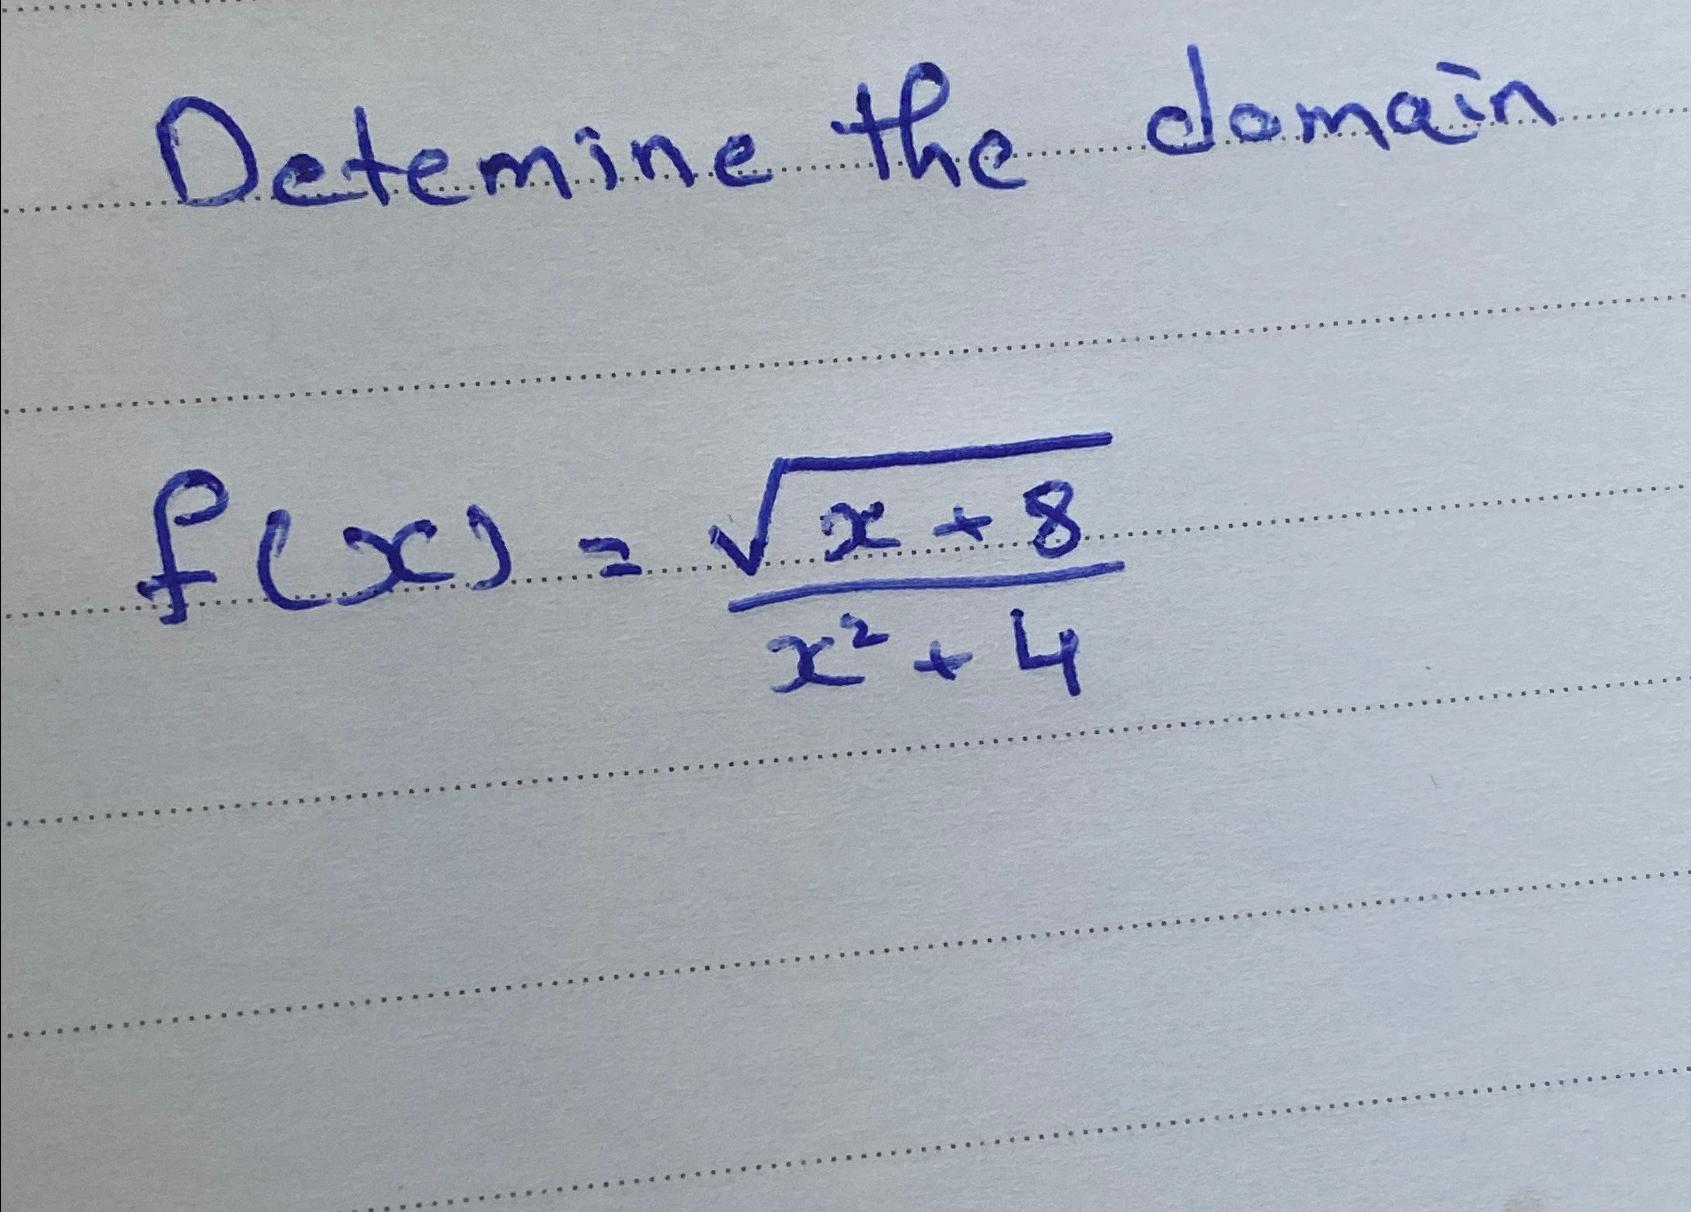 Detemine the domain
f(x) = √(x + 8) / (x² + 4)